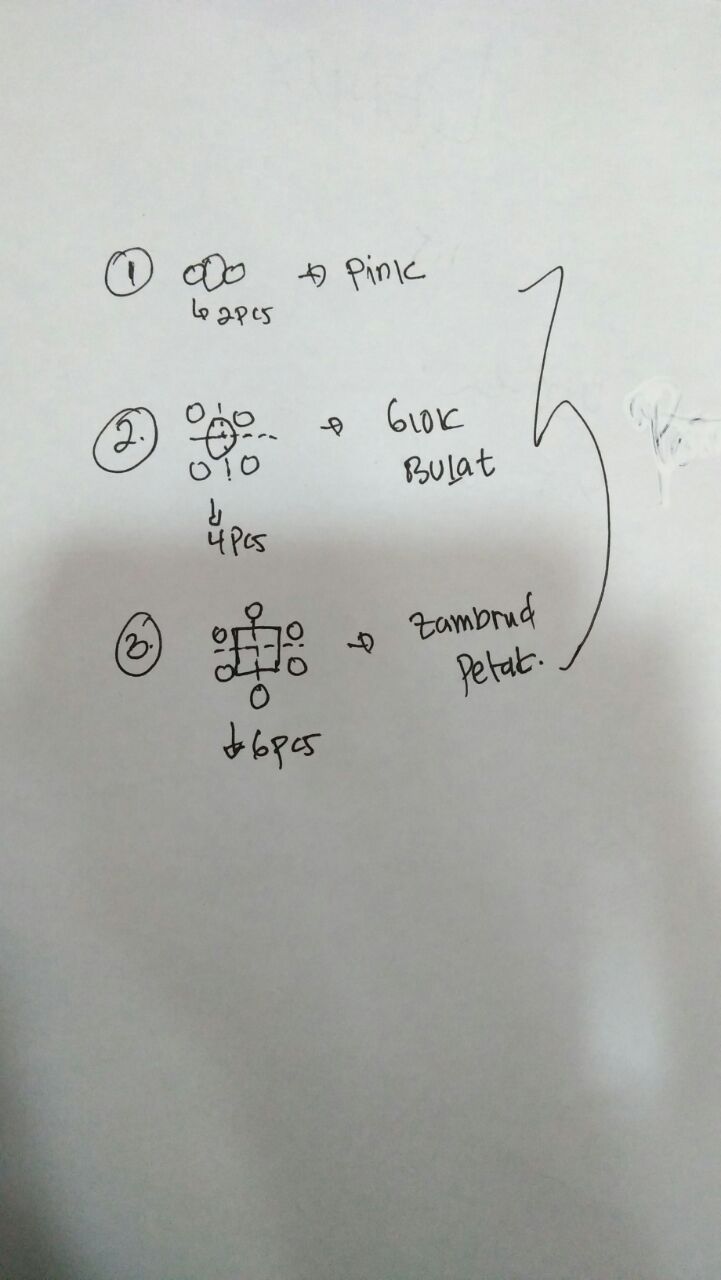 1 → Pink
↳ 2pcs
2. → Giok
Bulat
↓
4 Pcs
3. → Zambrud
↓ 6pcs